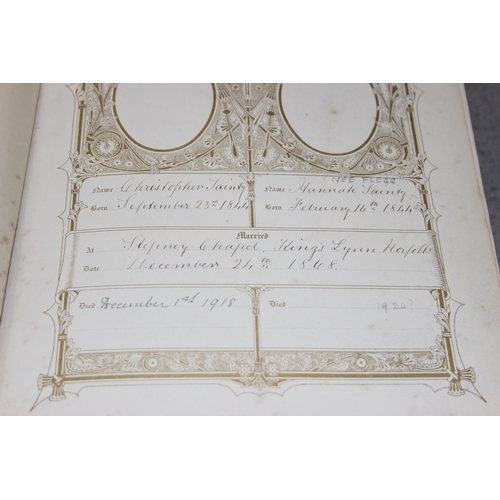 NEE
Name Christopher Sainty Name Hannah Sainty
Born September 25th 1844 Born February 16th 1844
Married
At Stepney Chapel, King's Lynn Norfolk
Date December 24th 1868.
Died December 1st 1918 Died 1924?